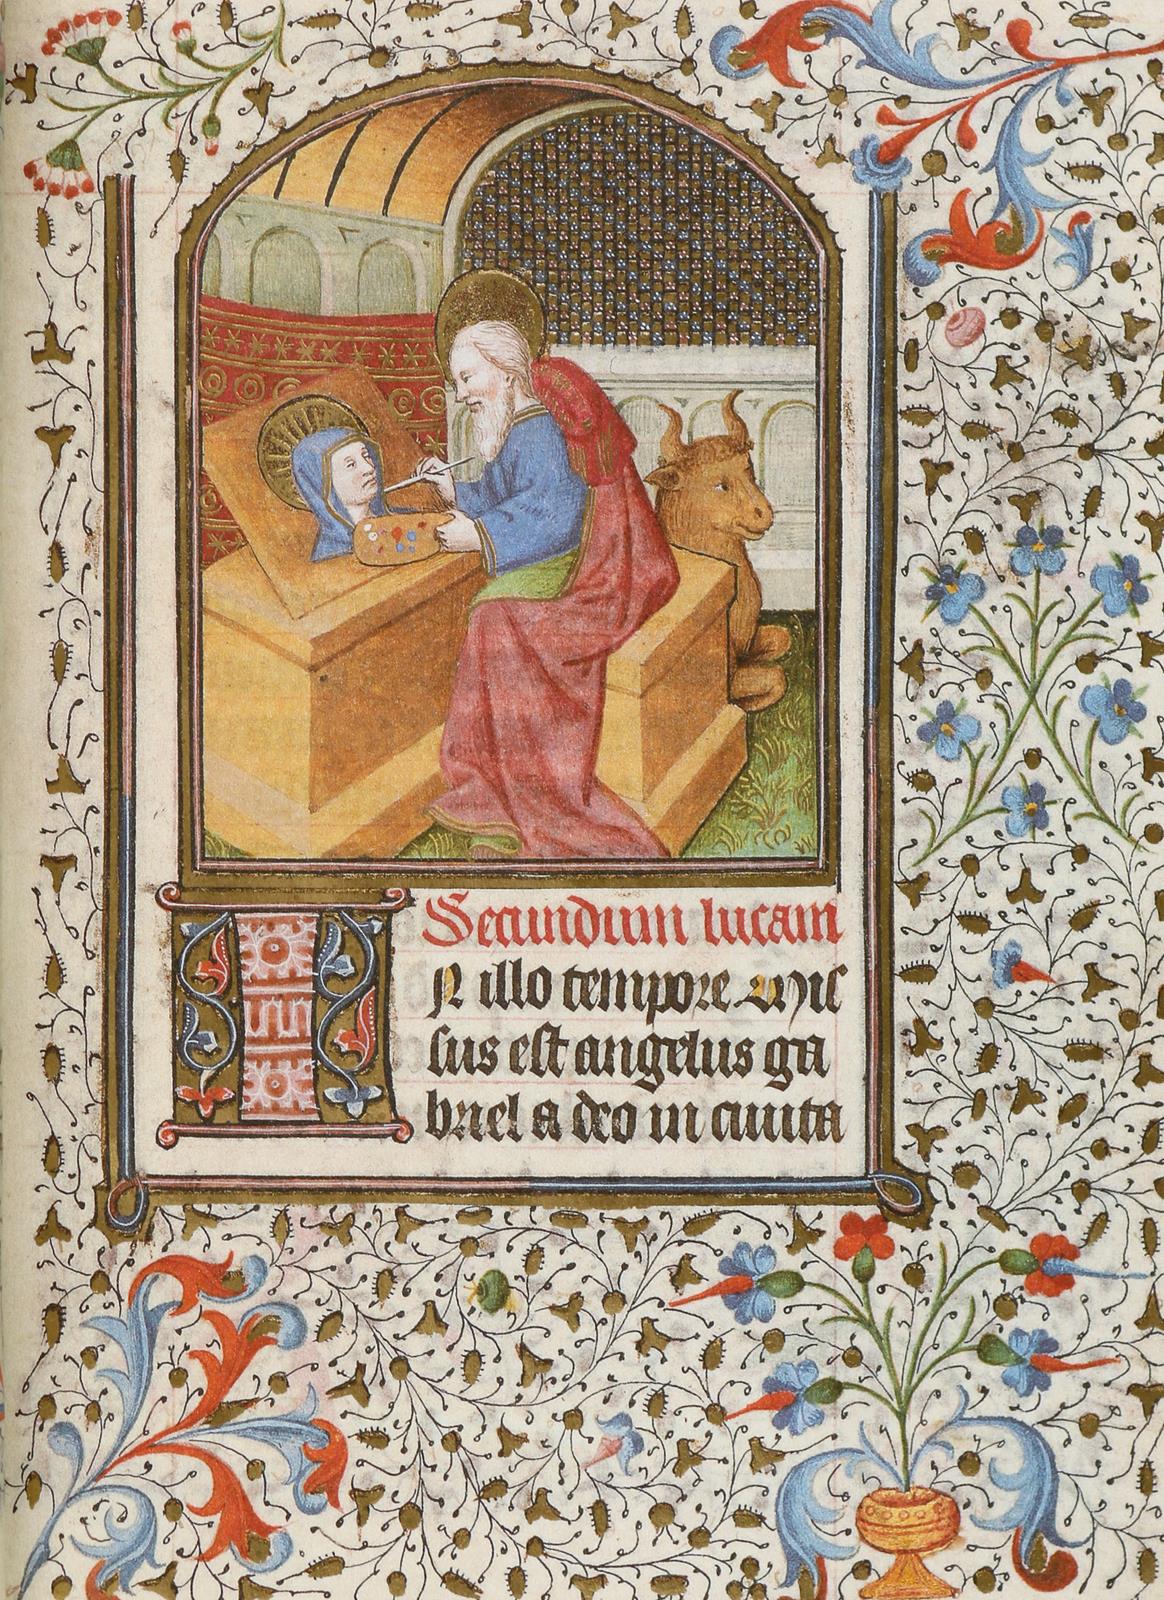 Secundum lucam
In illo tempore Mis
sus est angelus ga
briel a deo in ciuita